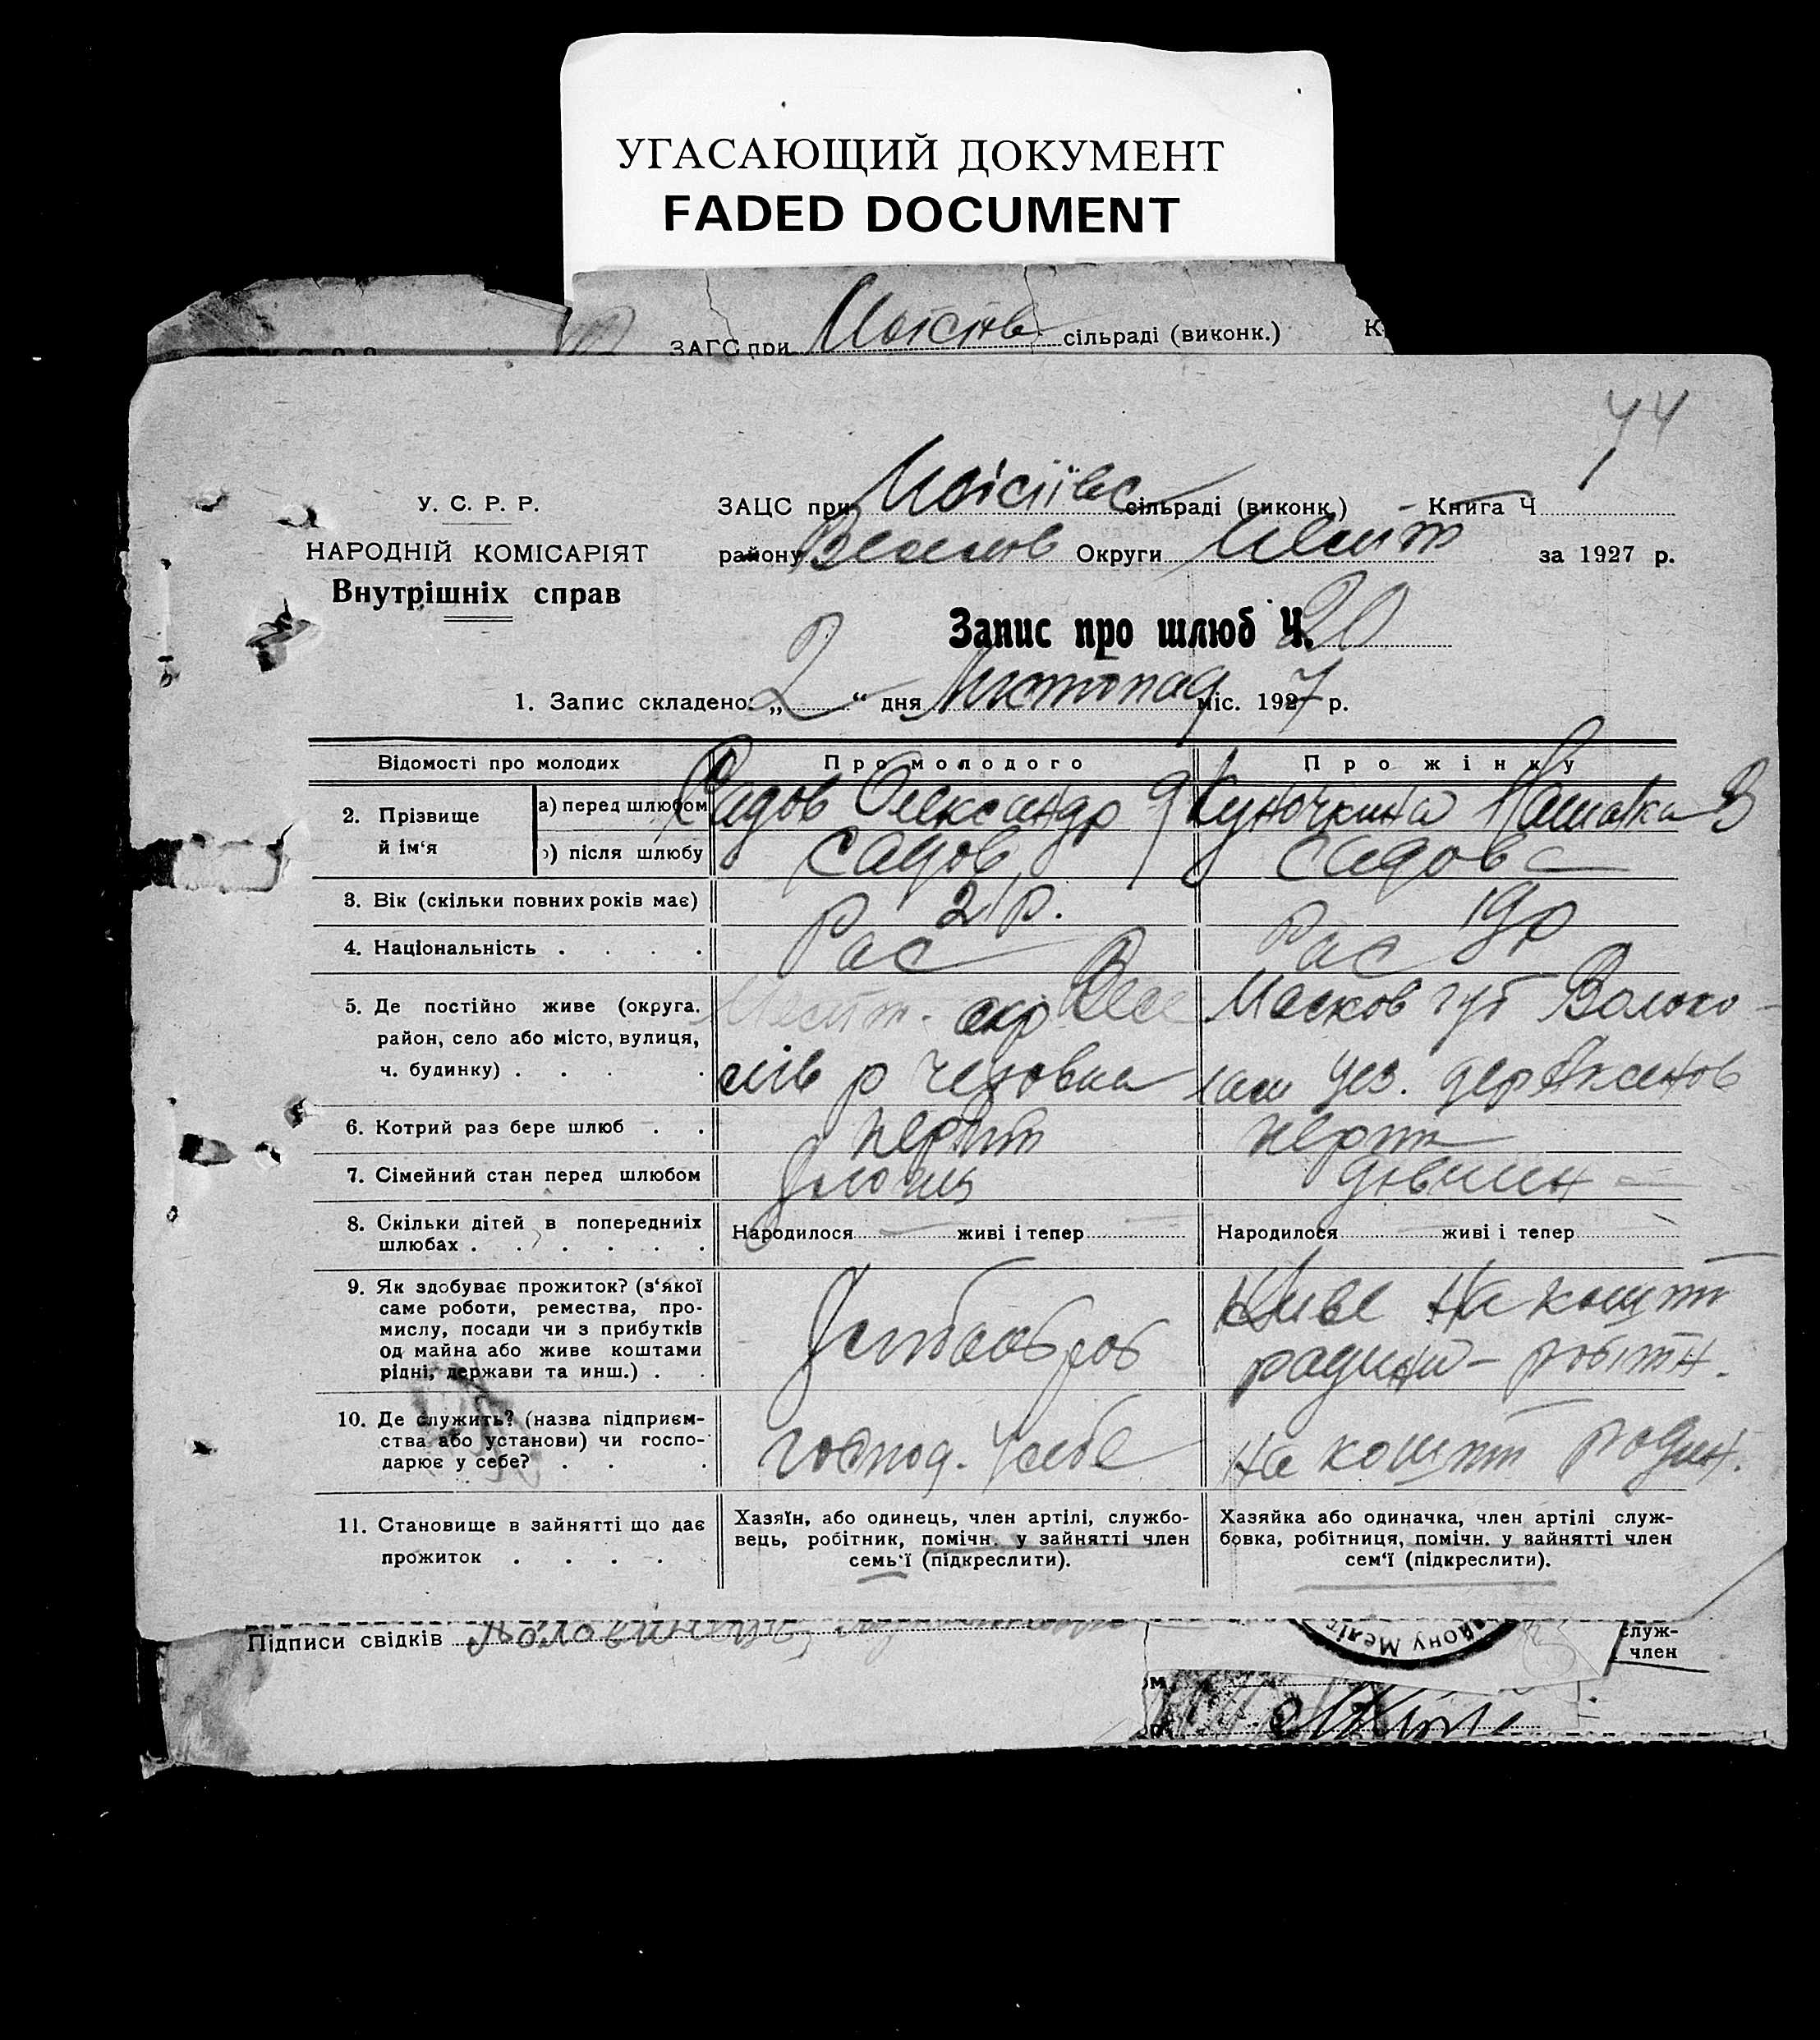 УГАСАЮЩИЙ ДОКУМЕНТ
FADED DOCUMENT
ЗАГС при сільраді (виконк.)
44
У. С. Р. Р.
НАРОДНІЙ КОМІСАРІЯТ
Внутрішніх справ
ЗАЦС при Моісіївс сільраді (виконк.) Книга Ч
району Округи Меліт за 1927 р.
Запис про шлюб Ч. 20
1. Запис складено: „ 2 “ дня Листопад міс. 1927 р.
Відомості про молодих Про молодого Про жінку
2. Прізвище й ім‘я
а) перед шлюбом Садов Олександр Куночкина
б) після шлюбу Садов Садова
3. Вік (скільки повних років має) 21 р. 19 р
4. Національність . . . . Рас Рас
5. Де постійно живе (округа. Меліт. окр Весе Москов губ Волоко-
район, село або місто, вулиця, р лам уез. дер Аксенов
ч. будинку) . . . .
6. Котрий раз бере шлюб . . перт
7. Сімейний стан перед шлюбом
8. Скільки дітей в попередніх Народилося живі і тепер Народилося живі і тепер
шлюбах . . . . . .
9. Як здобуває прожиток? (з‘якої Живе на кошти
саме роботи, ремества, про-
мислу, посади чи з прибутків
од майна або живе коштами родини – робітн.
рідні, держави та инш.) . .
10. Де служить? (назва підприєм-
ства або установи) чи госпо- господ. у себе на кошти родин.
дарює у себе? . . .
11. Становище в зайнятті що дає
прожиток . . . .
Хазяїн, або одинець, член артілі, службо-
вець, робітник, помічн. у зайнятті член
семь‘ї (підкреслити).
Хазяйка або одиначка, член артілі служ-
бовка, робітниця, помічн. у зайнятті член
сем‘ї (підкреслити).
Підписи свідків
служ-
член